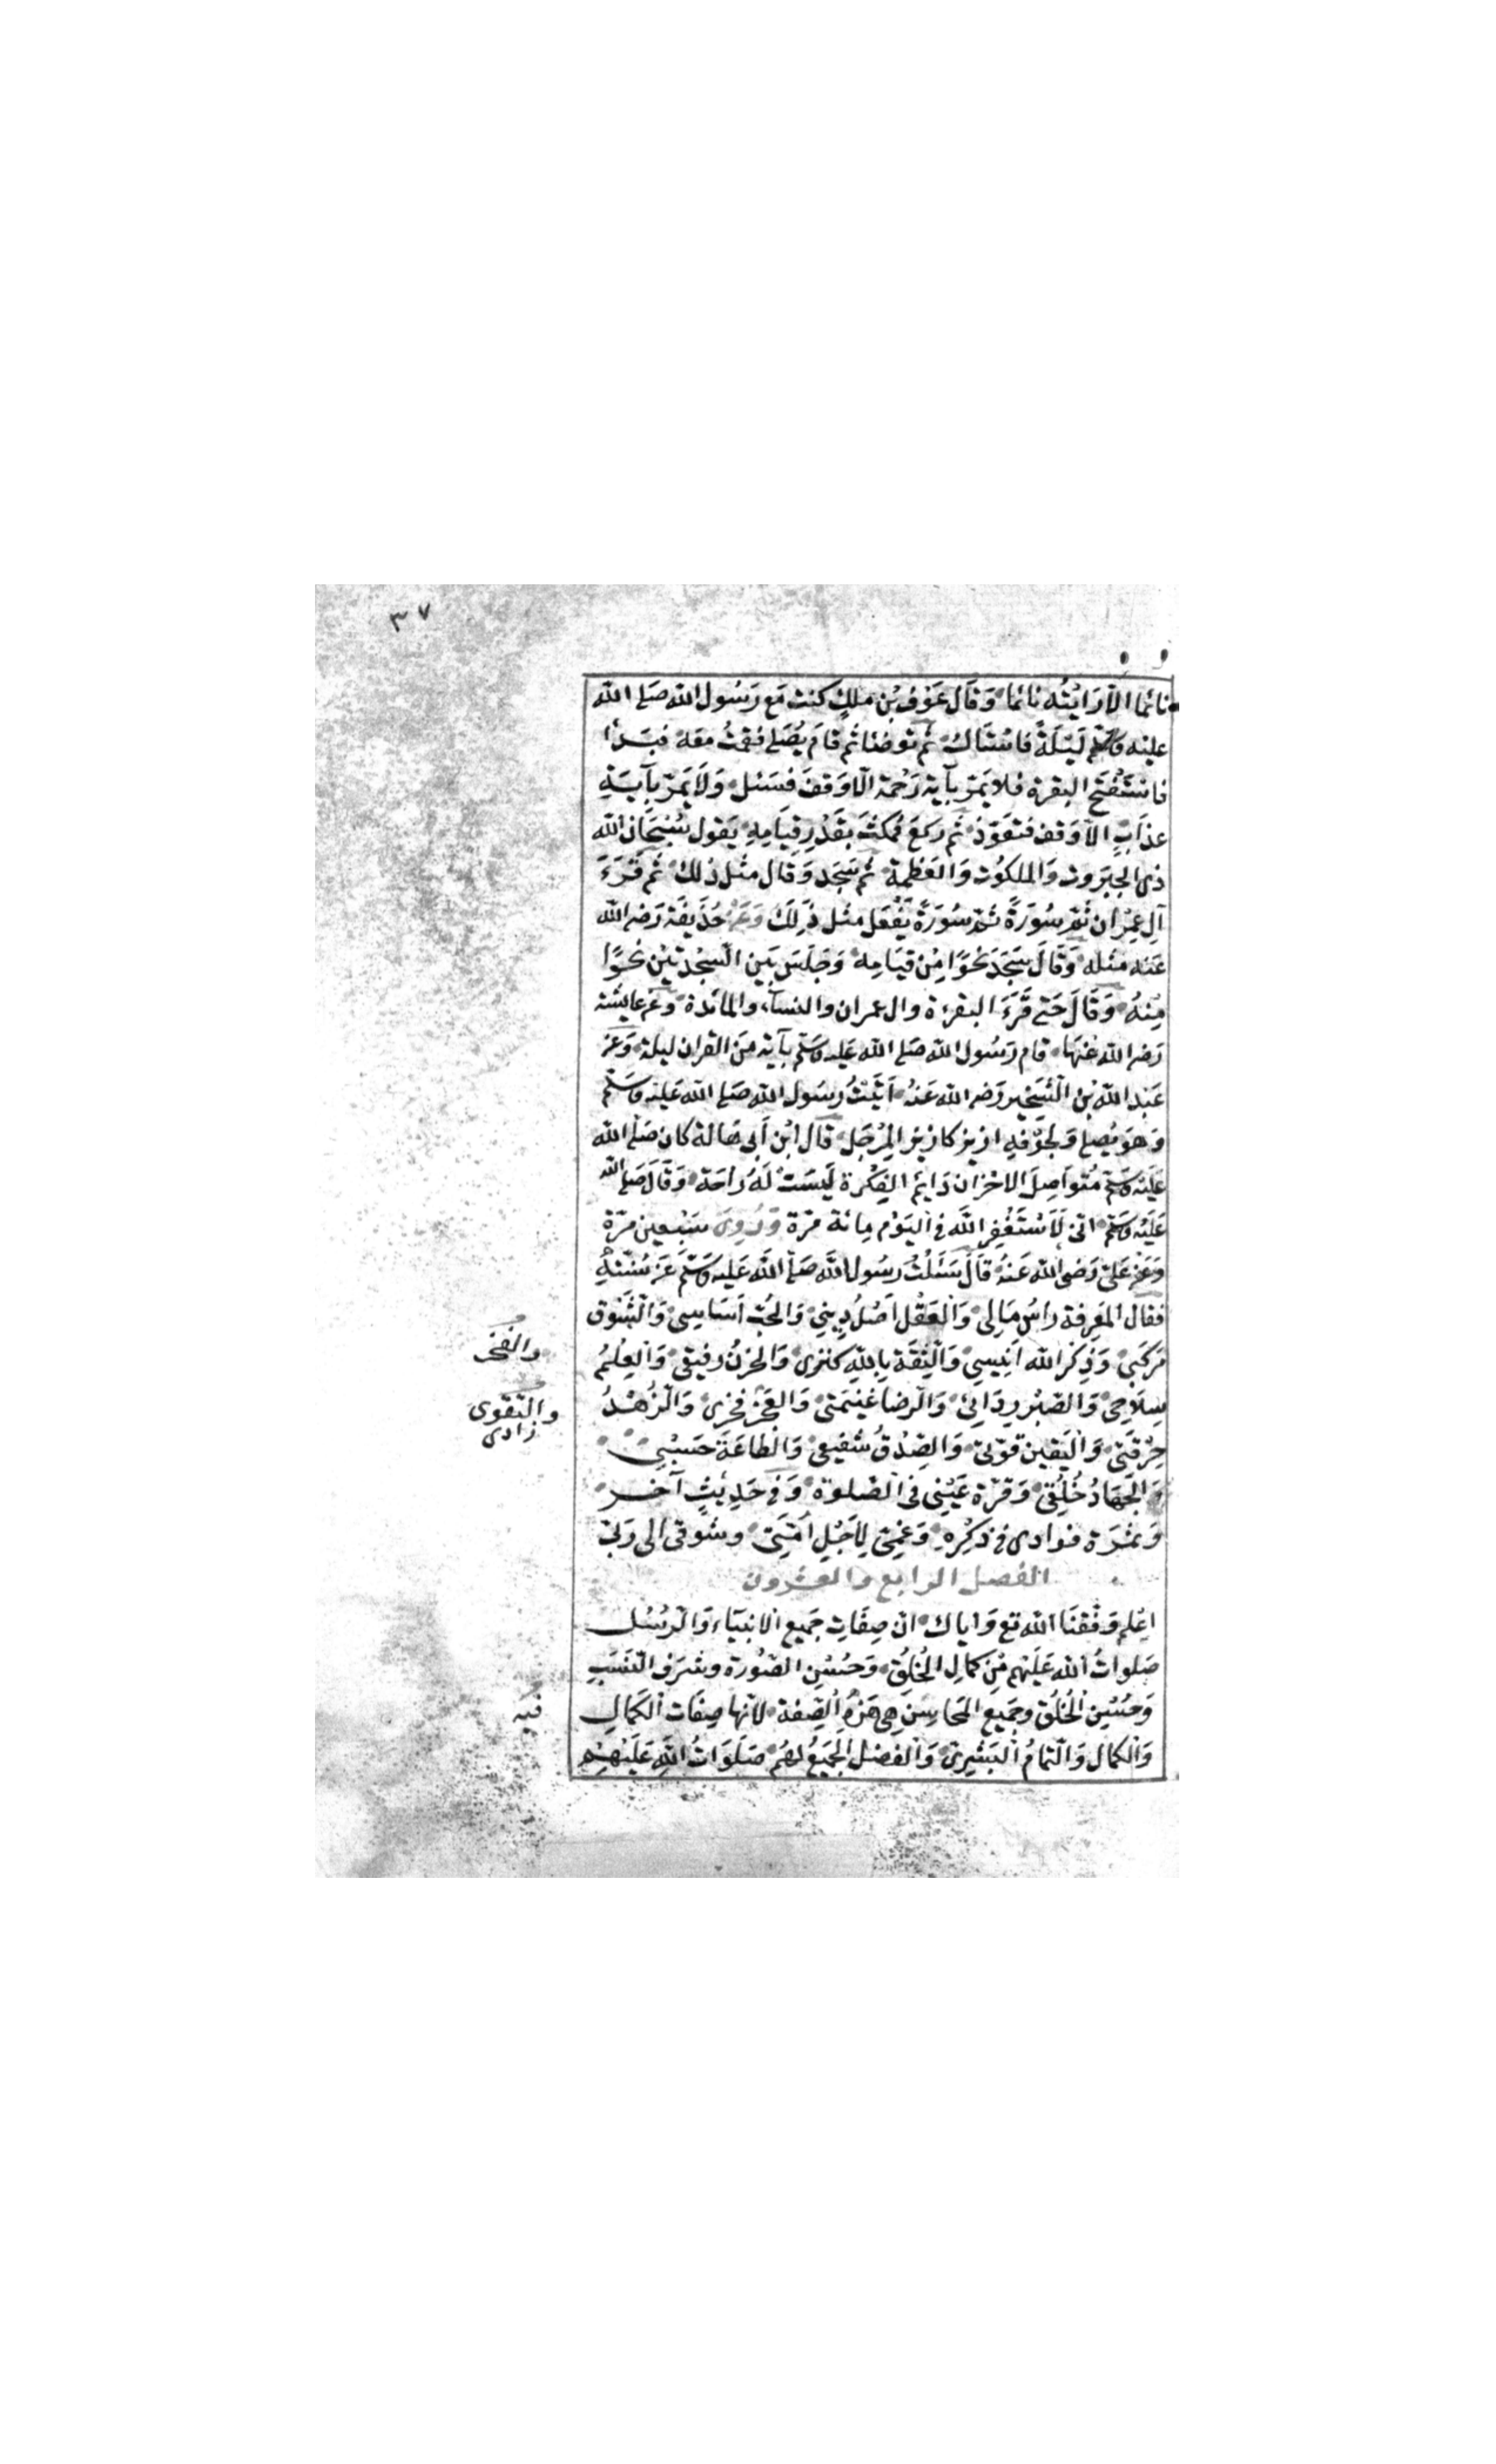 ٣٧
نائما الا رَايْتُه نائما وَقَال عَوْف بْن ملكٍ كنت مَع رَسُول الله صَلى الله
عليْه وسلم لَيْلَةً فاسْتَاكَ ثم توضا ثم قامَ يُصَلى فقمْتُ معَه فبَدأ
فاسْتَفْتَح البقرة فلا يَمرّ بآية رَحْمة الّا وَقفَ فسَئل وَلَا يَمرّ بآيَةِ
عذَابٍ الا وَقف فتعَوّذ ثم ركعَ فمكثَ بقَدْرِ قِيَامِهِ يَقول سُبْحَان الله
ذى الجبَروت وَالملكوُت وَالعَظمة ثم سَجَد وَقال مثل ذلك ثم قَرَءَ
آل عِمْران ثمّ سُورَةً ثمّ سُورَةً يَفْعَل مثل ذَلِكَ وَعَنْ حُذَيفَة رَضى الله
عَنه مثله وَقَالَ سَجَدَ نَحْوًا مِنْ قيَامِه وَجَلسَ بَين السّجْدتيْن نَحْوًا
مِنْهُ وَقَالَ حَتى قَرَءَ البقرة وال عمران والنسآء والمائدة وعَن عايشة
رَضى الله عَنهَا قام رَسُول الله صَلى الله عَليه وسَلّم بآية مِنَ القران ليلة وَعَن
عَبْد الله بْن الشِّخّير رَضى الله عَنهُ اَتَيْتُ رسَول الله صَلى الله عَليْه وسَلّم
وَهوَ يُصلى وَلجَوْفهِ ازيز كازيز المِرْجَل قال ابْن اَبى هَالة كان صَلى الله
عَليْه وسَلم مُتوَاصِلَ الاحْزان دَايمَ الفِكْرة ليسَتْ لَهُ رَاحَة وَقَالَ صَلى الله
عَلَيْه وسَلم انى لَاَسْتَغْفِر الله فى اليَوْم مِائة مَرّة وَرُوِىَ سَبْعين مَرّة
وَعَنْ عَلىّ رَضى الله عَنهُ قَالَ سَئَلْتُ رسُول الله صَلى الله عَليه وَسَلّم عَنْ سُنّتِهِ
فقال المَعرِفة راسُ مَالى وَالعَقْل اَصْلُ دِينى وَالحُبّ اَسَاسِى وَالشّوْق
مَركَبى وَذِكْر الله اَنِيسِى وَالثِقَة بِاللهِ كنزى وَالحزنُ رفيقى وَالعِلْمُ
سِلَاحِى وَالصّبْر رِدَائِى وَالرضا غنيمَتى وَالعَجْز فخرى وَالزّهْدُ
حِرْفَتى وَاليَقين قوّتى وَالصِّدْقُ شفيعى وَالطاعَة حَسَبِى
وَالجهَادُ خُلُقى وَقرّة عَيْنِى فى الصّلوة وَفى حَدِيثٍ آخر
وَثمَرَة فوادى فى ذكِره وَغمِّى لِاَجْلِ امّتِى وشوقى الى رَبّى
الفصل الرابع والعشرون
اعْلم وَفّقنَا الله تع وَاياك ان صِفَاتِ جَميع الانبيَاء وَالرّسُل
صَلوات الله عَلَيْهم مِن كمال الخُلُق وَحُسْنِ الصّوُرة وشرَف النّسَبِ
وَحُسْن الخُلُق وجَميع المَحَاسِن هى هَذهُ الصِّفة لانها صِفَات الكمَال
وَالكمال وَالتمامُ البَشِيرىّ وَالفضل الجميعُ لهُم صَلَوَاتُ الله عَلَيْهِم
والفخر
والتقوى
زادى
فيه